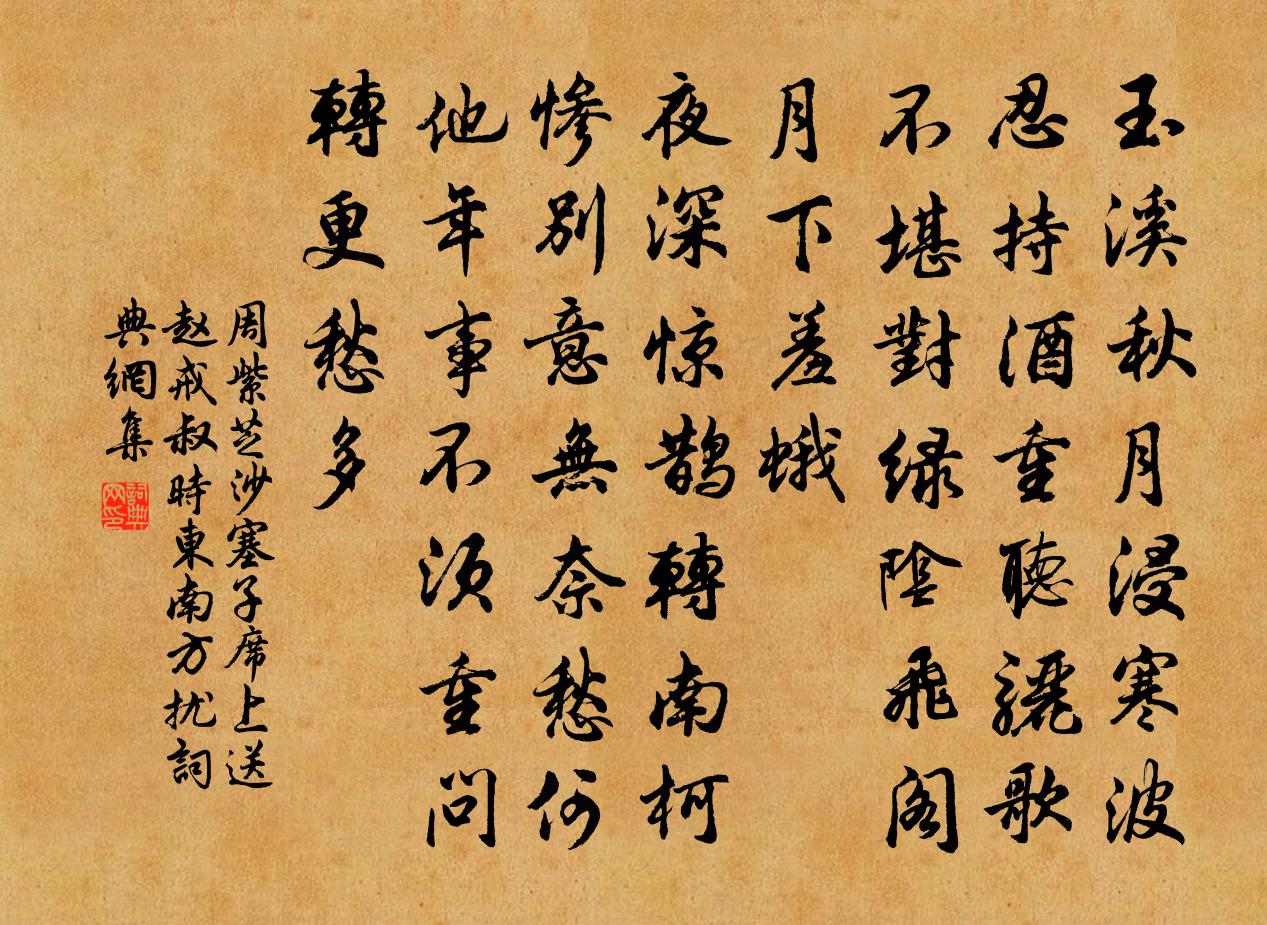 玉溪秋月浸寒波
忍持酒重聽驪歌
不堪對緑陰飛閣
月下羞蛾
夜深惊鵲轉南柯
慘別意無奈愁何
他年事不須重問
轉更愁多
周紫芝沙塞子席上送
赵戒叔時東南方扰詞
典網集
詞典
网印